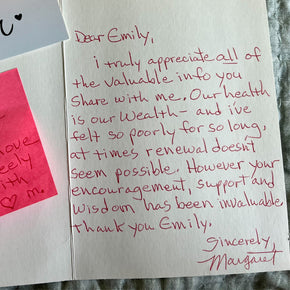 Dear Emily,
i truly appreciate all of
the valuable info you
share with me. Our health
is our wealth - and i've
felt so poorly for so long,
at times renewal doesn't
seem possible. However your
encouragement, support and
wisdom has been invaluable
thank you Emily.
Sincerely,
Margaret
♡ m.